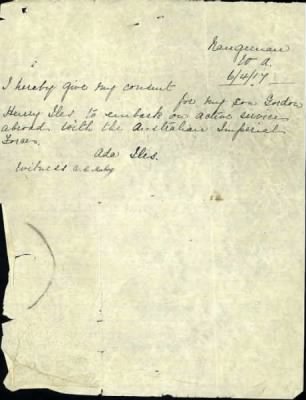 Nangeenan
W A.
6/4/17
I hereby give my consent
for my son Gordon
Henry Iles to embark on active service
abroad with the Australian Imperial
Forces.
Ada Iles.
Witness